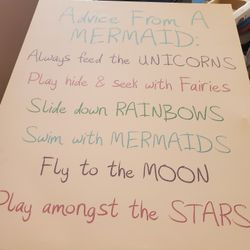 Advice From A
MERMAID:
Always feed the UNICORNS
Play hide & seek with Fairies
Slide down RAINBOWS
Swim with MERMAIDS
Fly to the MOON
Play amongst the STARS